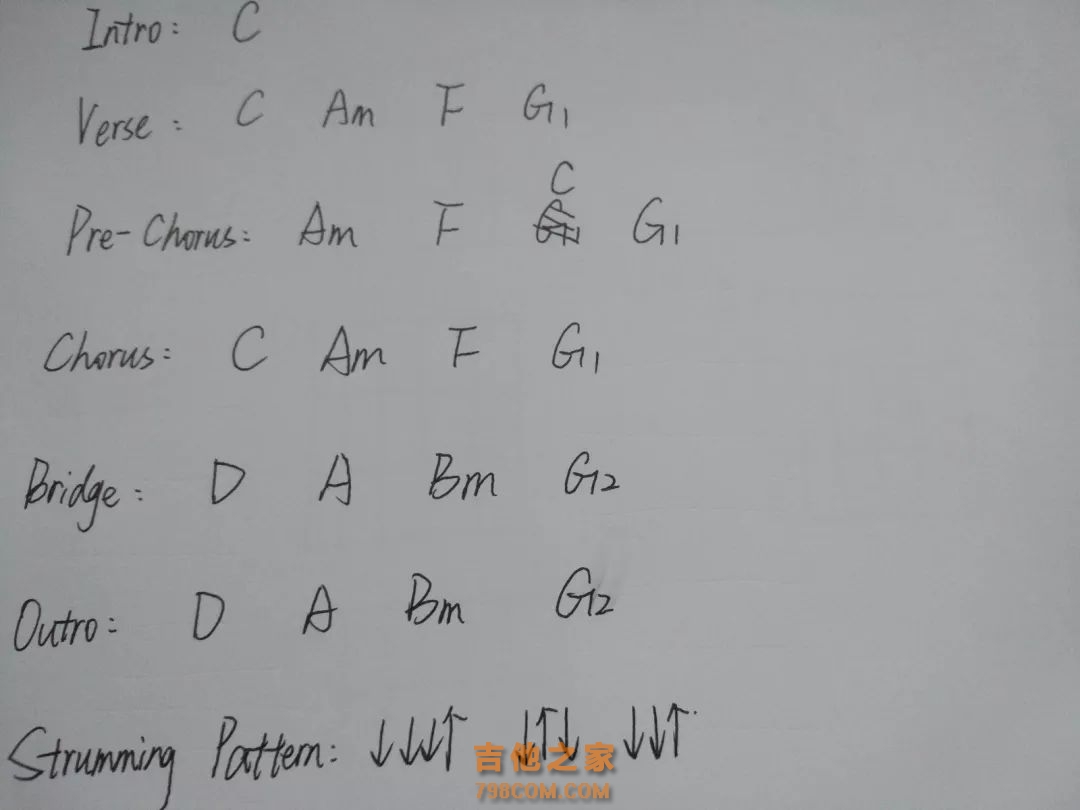 Intro: C
Verse: C Am F G1
Pre-Chorus: Am F C G1
Chorus: C Am F G1
Bridge: D A Bm G2
Outro: D A Bm G2
Strumming Pattern: ↓↓↓↑ ↓↑↓ ↓↓↑
吉他之家
798COM.COM